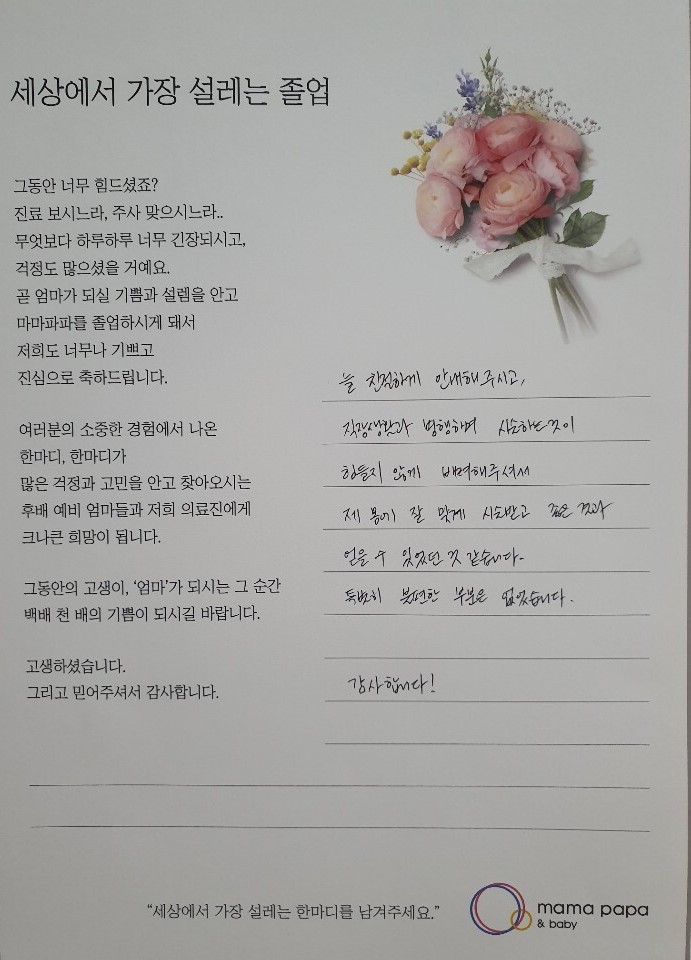 세상에서 가장 설레는 졸업
그동안 너무 힘드셨죠?
진료 보시느라, 주사 맞으시느라..
무엇보다 하루하루 너무 긴장되시고,
걱정도 많으셨을 거예요.
곧 엄마가 되실 기쁨과 설렘을 안고
마마파파를 졸업하시게 돼서
저희도 너무나 기쁘고
진심으로 축하드립니다.
여러분의 소중한 경험에서 나온
한마디, 한마디가
많은 걱정과 고민을 안고 찾아오시는
후배 예비 엄마들과 저희 의료진에게
크나큰 희망이 됩니다.
그동안의 고생이, ‘엄마’가 되시는 그 순간
백배 천 배의 기쁨이 되시길 바랍니다.
고생하셨습니다.
그리고 믿어주셔서 감사합니다.
늘 친절하게 안내해주시고,
직장생활과 병행하며 시술하는것이
힘들지 않게 배려해주셔서
제 몸에 잘 맞게 시술받고 좋은 결과
얻을 수 있었던 것 같습니다.
특별히 불편한 부분은 없었습니다.
감사합니다!
“세상에서 가장 설레는 한마디를 남겨주세요.”
mama papa
& baby